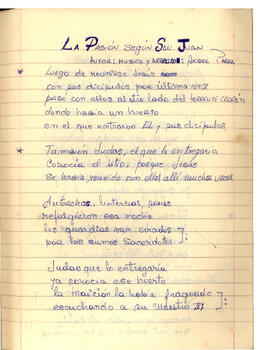 LA PASIÓN SEGÚN SAN JUAN
AUTOR: MUSICA Y ANGEL PARRA
LUEGO DE REUNIRSE JESÚS
CON SUS DISCIPULOS POR ÚLTIMA VEZ
PASÓ CON ELLOS AL OTRO LADO DEL TORRENTE CEDRÓN
DONDE HABIA UN HUERTO
EN EL QUE ENTRARON EL Y SUS DISCIPULOS
TAMBIÉN JUDAS, EL QUE LO ENTREGARIA
CONOCIA EL SITIO, PORQUE JESÚS
SE HABIA REUNIDO CON ELLOS ALLÍ MUCHAS VECES
ANTORCHAS, LINTERNAS, ARMAS
REFULGIERON ESA NOCHE
LOS GUARDIAS VAN ENVIADOS
POR LOS SUMOS SACERDOTES
JUDAS QUE LO ENTREGARIA
YA CONOCIA ESE HUERTO
LA TRAICIÓN LA HABIA FRAGUADO
ESCUCHANDO A SU MAESTRO